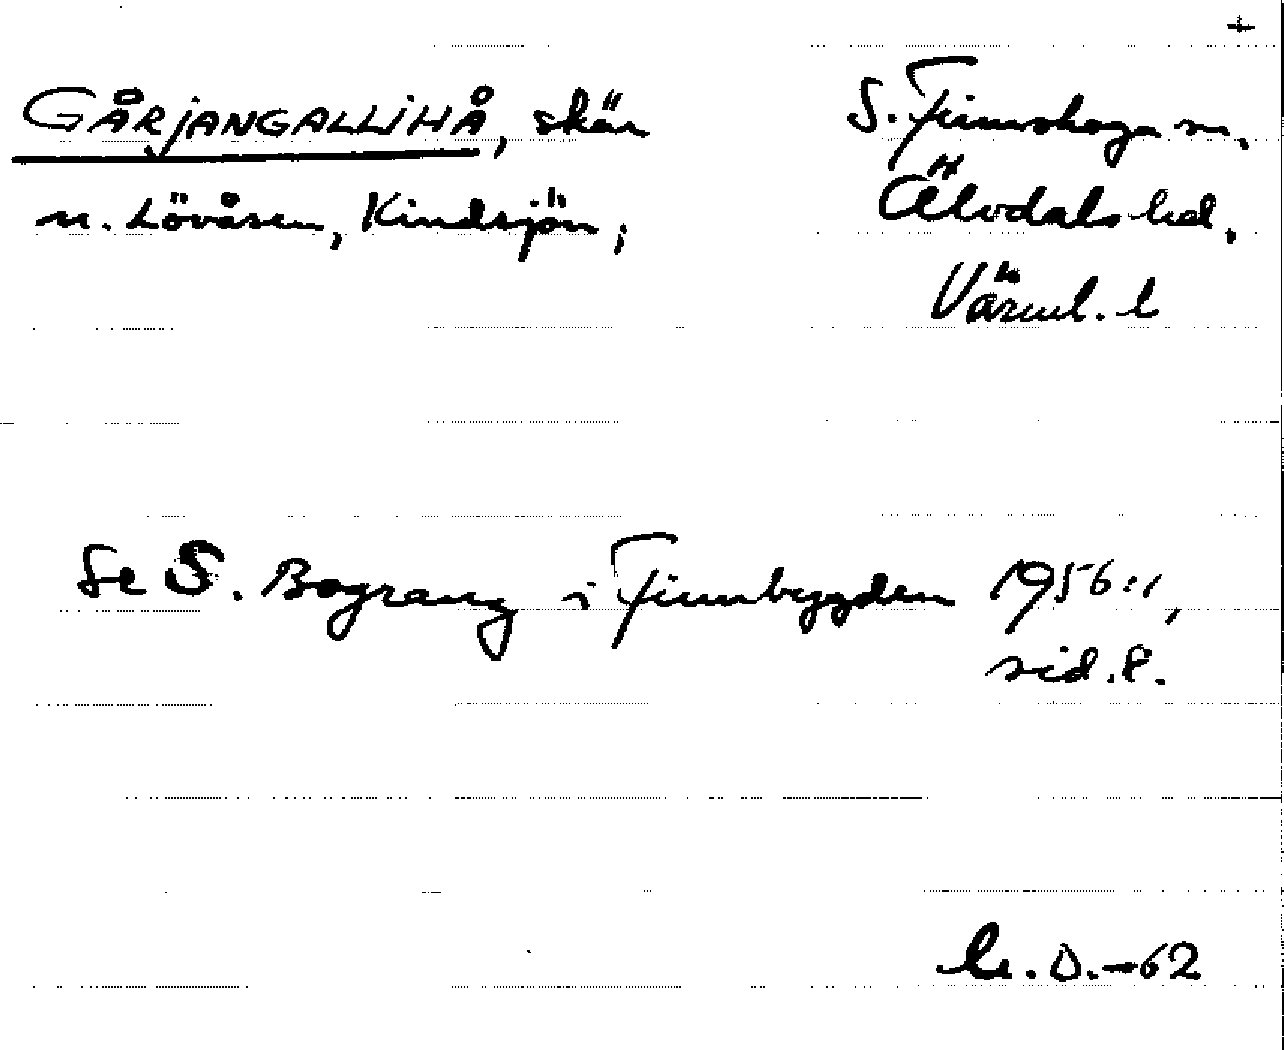 GÅRJANGALLIHÅ, skär
n. Lövåsen, Kindsjön;
S. Finnskoga sn,
Älvdals hd,
Värml. l
Se S. Bograng i Finnbygden 1956:1,
sid. 8.
D.-62